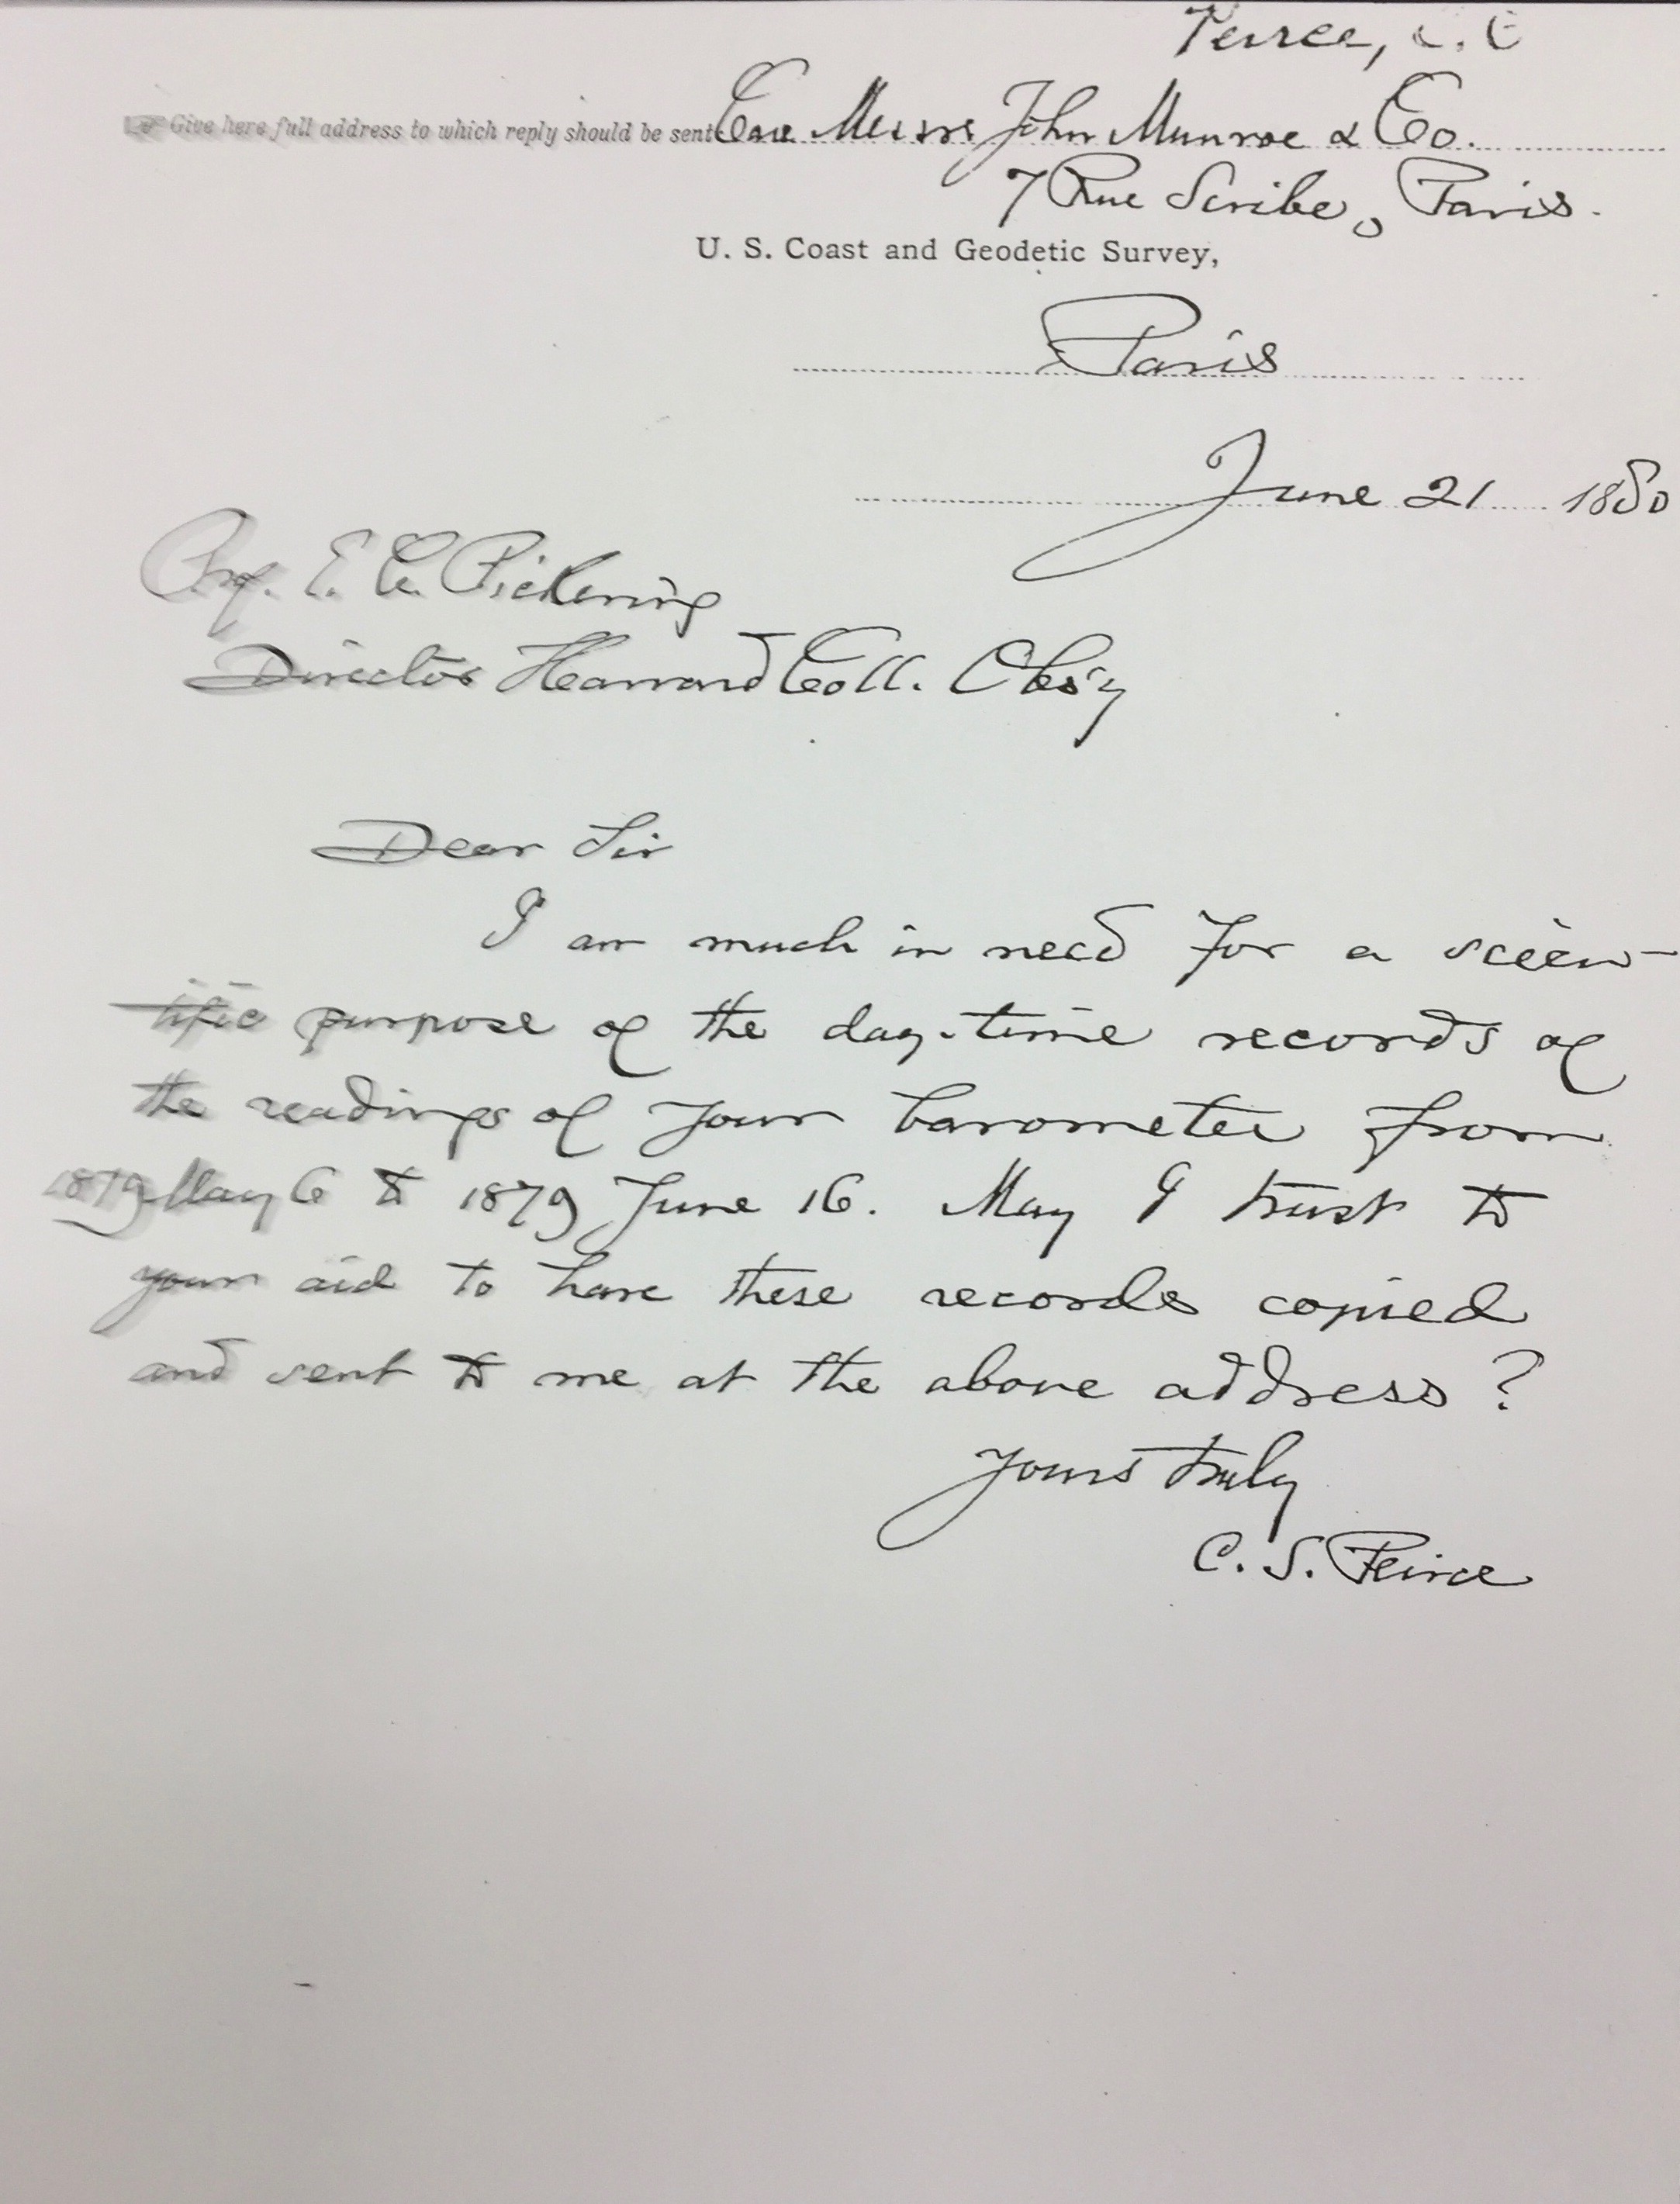 Peirce, C. S
Give here full address to which reply should be sent Care Messrs John Munroe & Co.
7 Rue Scribe, Paris.
U. S. Coast and Geodetic Survey,
Paris
June 21 1880
Prof. E. C. Pickering
Director Harvard Coll. Obs'y
Dear Sir
I am much in need for a scien-
tific purpose of the day-time records of
the readings of your barometer from
1879 May 6 to 1879 June 16. May I trust to
your aid to have these records copied
and sent to me at the above address?
Yours truly
C. S. Peirce